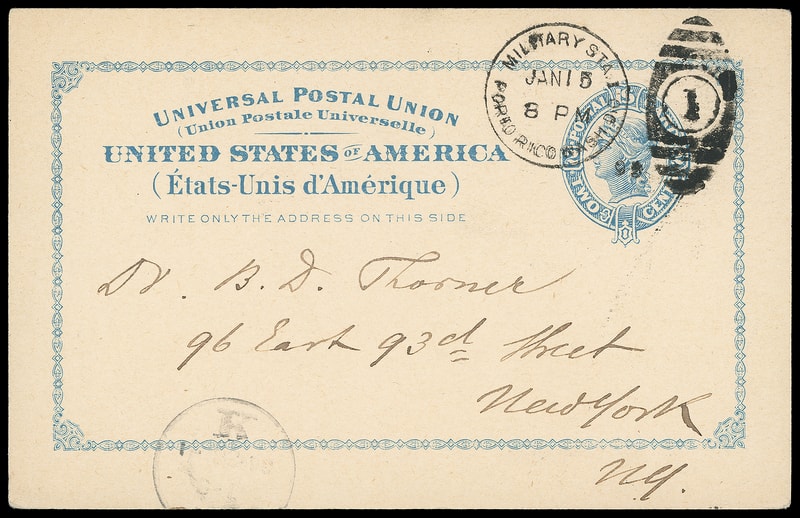 UNIVERSAL POSTAL UNION
(Union Postale Universelle)
UNITED STATES OF AMERICA
(États-Unis d'Amérique)
WRITE ONLY THE ADDRESS ON THIS SIDE
MILITARY STA.
JAN 15
8 PM
PORTO RICO
1
TWO CENTS
Dr. B. D. Thorner
96 East 93d Street
New York
NY.